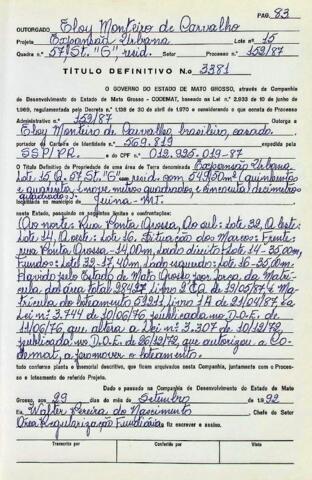 PAG. 83
OUTORGADO Eloy Monteiro de Carvalho
Projeto Expansão Urbana Lote n.º 15
Quadra n.º 57, St. "G", resid. Setor Processo n.º 152/87
TÍTULO DEFINITIVO N.o 3381
O GOVERNO DO ESTADO DE MATO GROSSO, através da Companhia
de Desenvolvimento do Estado de Mato Grosso - CODEMAT, baseado na Lei n.º 2.933 de 10 de
1969, regulamentada pelo Decreto n.º 1.138 de 30 de abril de 1970 e considerando o que consta do Processo
Administrativo n.º 152/87 Outorga a
Eloy Monteiro de Carvalho brasileiro, casado.
portador da Carteira de Identidade n.º 569.819 expedida pela
SSP/PR. e do CPF n.º 012.925.019-87
O Título Definitivo de Propriedade de uma área de Terra denominada Expansão Urbana
Lote 15, Q. 57, St. "G" resid. com 549,50m² (quinhentos
e quarenta e nove metros quadrados e cinquenta decímetros
quadrados).
situada no município de Juina-MT.
neste Estado, pasquisando os seguintes limites e confrontações:
(Ao norte: Rua Ponta Grossa, Ao sul: Lote 22, A leste:
Lote 14, A oeste: Lote 16. Situação dos Marcos: Frente:
rua Ponta Grossa-14,00m, lado direito: Lote 14-35,00m,
Fundo: Lote 22-17,40m, lado esquerdo: Lote 16-35,00m.
Havido pelo Estado de Mato Grosso por força da Matrí-
cula da área total 28427, livro 2 CA de 19/05/87, e Ma-
trícula do loteamento 53211, livro 1A de 21/04/87, ex
Lei n.º 3.744 de 10/06/76, publicada no D.O.E. de
11/06/76, que altera a Lei n.º 3.307 de 10/12/72,
publicada no D.O.E. de 26/12/72, que autorizou a Co-
demat, a promover o loteamento.
tudo conforme planta e memorial descritivo, que ficam arquivados nesta Companhia, juntamente com o Proces-
so e loteamento do referido Projeto.
Dado e passado na Companhia de Desenvolvimento do Estado de Mato
Grosso, aos 29 dias do mês de Setembro de 1.992
Eu Walter Pereira do Nascimento Chefe do Setor
Área Regularização Fundiária fiz escrever e assino.
Transcrito por Conferido por Visto